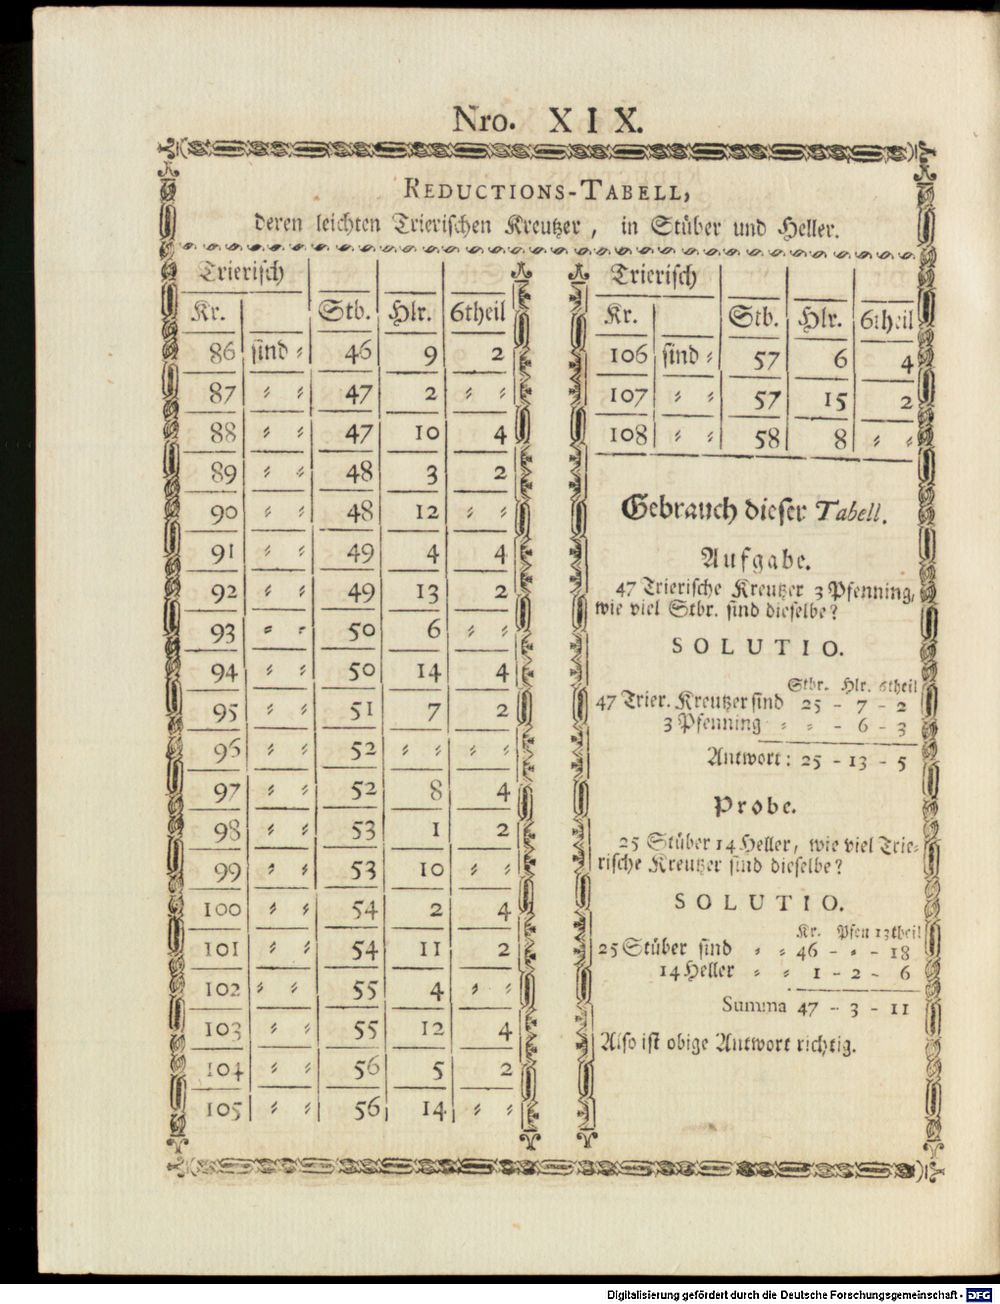 Nro. XIX.
REDUCTIONS-TABELL,
deren leichten Trierischen Kreutzer, in Stüber und Heller.
Trierisch
Kr. Stb. Hlr. 6theil
86 sind ⸗ 46 9 2
87 ⸗ ⸗ 47 2 ⸗ ⸗
88 ⸗ ⸗ 47 10 4
89 ⸗ ⸗ 48 3 2
90 ⸗ ⸗ 48 12 ⸗ ⸗
91 ⸗ ⸗ 49 4 4
92 ⸗ ⸗ 49 13 2
93 ⸗ ⸗ 50 6 ⸗ ⸗
94 ⸗ ⸗ 50 14 4
95 ⸗ ⸗ 51 7 2
96 ⸗ ⸗ 52 ⸗ ⸗ ⸗ ⸗
97 ⸗ ⸗ 52 8 4
98 ⸗ ⸗ 53 1 2
99 ⸗ ⸗ 53 10 ⸗ ⸗
100 ⸗ ⸗ 54 2 4
101 ⸗ ⸗ 54 11 2
102 ⸗ ⸗ 55 4 ⸗ ⸗
103 ⸗ ⸗ 55 12 4
104 ⸗ ⸗ 56 5 2
105 ⸗ ⸗ 56 14 ⸗ ⸗
Trierisch
Kr. Stb. Hlr. 6theil
106 sind ⸗ 57 6 4
107 ⸗ ⸗ 57 15 2
108 ⸗ ⸗ 58 8 ⸗ ⸗
Gebrauch dieser Tabell.
Aufgabe.
47 Trierische Kreutzer 3 Pfenning,
wie viel Stbr. sind dieselbe?
SOLUTIO.
Stbr. Hlr. 6theil
47 Trier. Kreutzer sind 25 - 7 - 2
3 Pfenning ⸗ ⸗ - 6 - 3
Antwort: 25 - 13 - 5
Probe.
25 Stüber 14 Heller, wie viel Trie⸗
rische Kreutzer sind dieselbe?
SOLUTIO.
Kr. Pfen 12theil
25 Stüber sind ⸗ ⸗ 46 - ⸗ - 18
14 Heller ⸗ ⸗ 1 - 2 - 6
Summa 47 - 3 - 11
Also ist obige Antwort richtig.
Digitalisierung gefördert durch die Deutsche Forschungsgemeinschaft - DFG